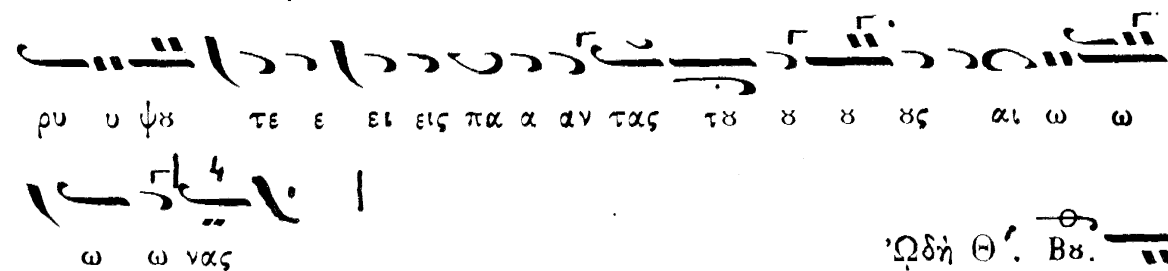 ρυ υ ψȣ τε ε ει εις πα α αν τας τȣ ȣ ȣ ȣς αι ω ω
ω ω νας
Ὠδὴ Θʹ. Βȣ.